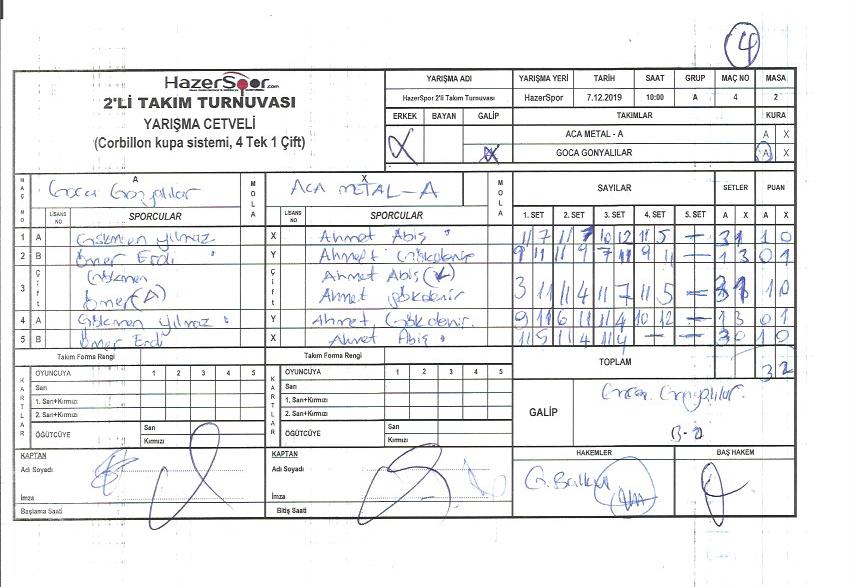 4
HazerSpor.com
2'Lİ TAKIM TURNUVASI
YARIŞMA CETVELİ
(Corbillon kupa sistemi, 4 Tek 1 Çift)
YARIŞMA ADI YARIŞMA YERİ TARİH SAAT GRUP MAÇ NO MASA
HazerSpor 2'li Takım Turnuvası HazerSpor 7.12.2019 10:00 A 4 2
ERKEK BAYAN GALİP TAKIMLAR KURA
ACA METAL - A A X
X GOCA GONYALILAR A X
MAÇ NO A Goca Gonyalılar MOLA X ACA METAL-A MOLA SAYILAR SETLER PUAN
LİSANS NO SPORCULAR LİSANS NO SPORCULAR 1. SET 2. SET 3. SET 4. SET 5. SET A X A X
1 A Gökmen Yılmaz X Ahmet Abiş 11 7 11 7 10 12 11 5 — 3 1 1 0
2 B Ömer Erdi Y Ahmet Gökdenir 9 11 11 9 7 11 9 11 — 1 3 0 1
3 Çift Gökmen Ömer (A) Çift Ahmet Abiş (X) Ahmet Gökdenir 3 11 11 4 11 7 11 5 — 3 1 1 0
4 A Gökmen Yılmaz Y Ahmet Gökdenir. 9 11 6 11 11 4 10 12 — 1 3 0 1
5 B Ömer Erdi X Ahmet Abiş 11 5 11 4 11 4 — — 3 0 1 0
Takım Forma Rengi Takım Forma Rengi TOPLAM 3 2
KARTLAR OYUNCUYA 1 2 3 4 5 KARTLAR OYUNCUYA 1 2 3 4 5
Sarı Sarı
1. Sarı+Kırmızı 1. Sarı+Kırmızı
2. Sarı+Kırmızı 2. Sarı+Kırmızı
ÖĞÜTCÜYE Sarı ÖĞÜTCÜYE Sarı
Kırmızı Kırmızı
GALİP Goca Gonyalılar.
KAPTAN KAPTAN HAKEMLER BAŞ HAKEM
Adı Soyadı Adı Soyadı
İmza İmza
Başlama Saati Bitiş Saati